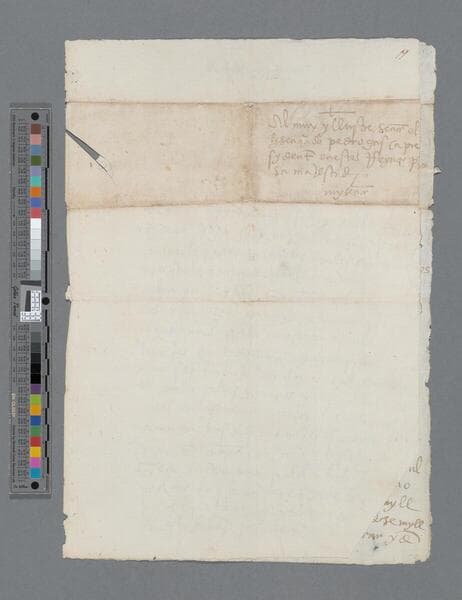 Al muy yllustre señor el
licenciado pedro gasca pre
sydente en estos Reynos por
su magestad
mi señor
ul
io
myll
doze myll